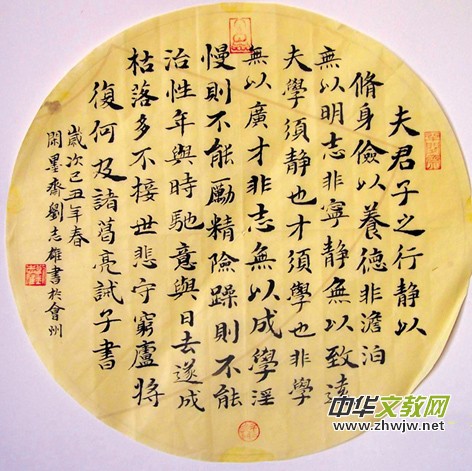 夫君子之行静以
脩身儉以養德非澹泊
無以明志非寧静無以致遠
夫學須静也才須學也非學
無以廣才非志無以成學淫
慢則不能勵精險躁則不能
治性年與時馳意與日去遂成
枯落多不接世悲守窮廬將
復何及諸葛亮誡子書
歲次己丑年春
閑墨齋劉志雄書於會州
中华文教网
www.zhwjw.net